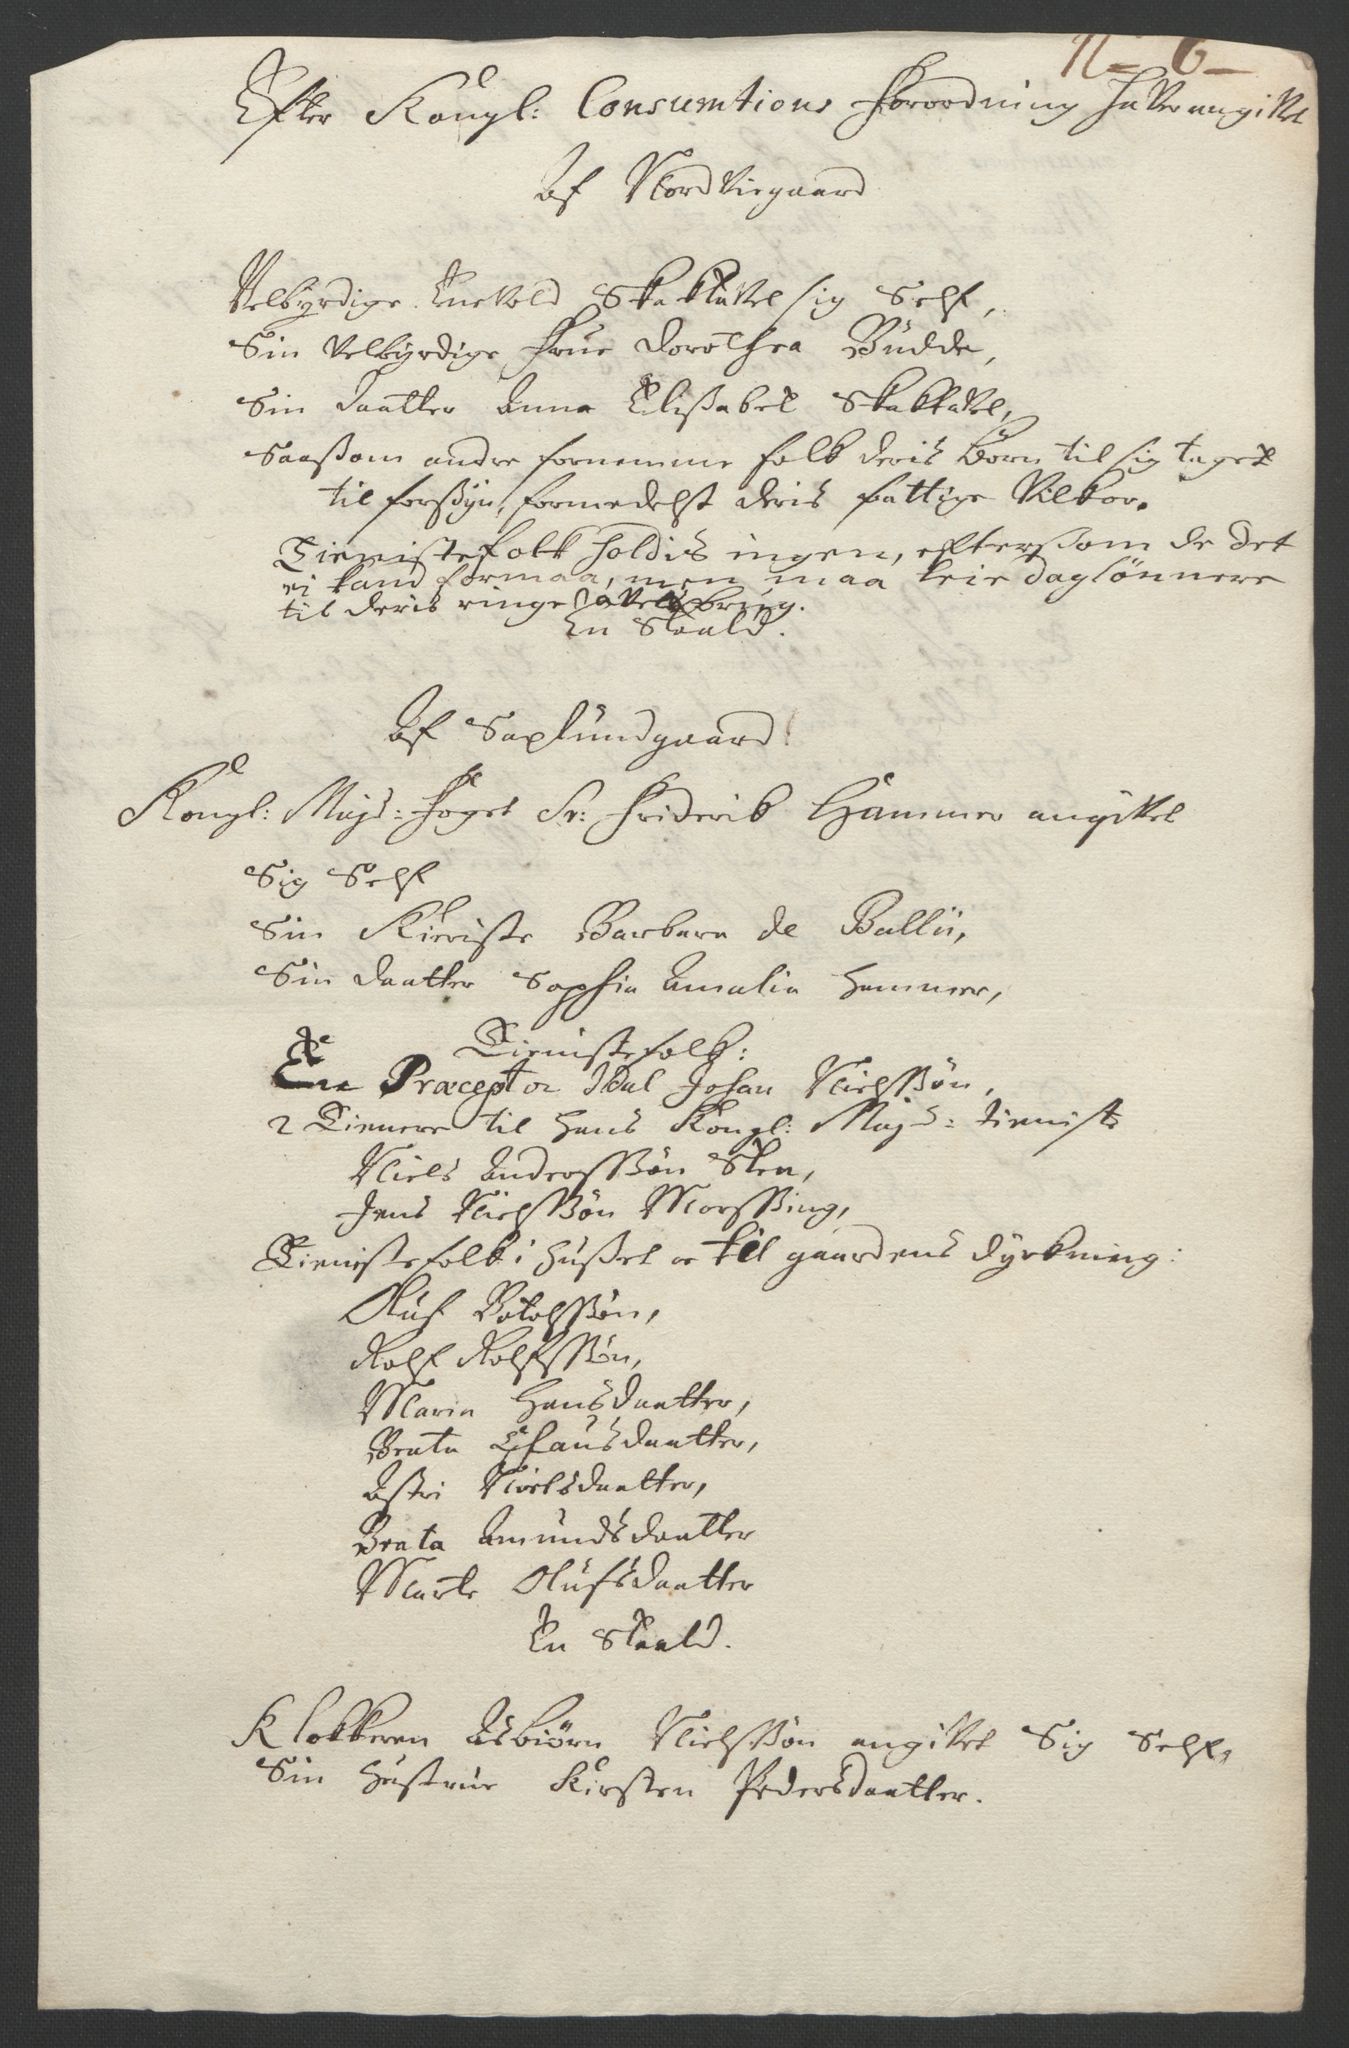 N- 6-
Efter Kongl: Consumtions Forordning hafver angifvet
Af Nordviegaard
Velbyrdige Enevold Skaktavel sig Self,
Sin velbyrdige Frue Dorothea Budde,
Sin daatter Anna Elisabet Skaktavel,
Saasom andre fornemme folk deris Børn til sig taget
til forsyn, formedelst deris fattige Vilkor.
Tienistefolk holdis ingen, eftersom de det
ei kand formaa, men maa leie daglønnere
til deris ringe avelsbrug.
En Staald.
Af Saxlundgaard
Kongl: Mays: Foget Sr: Friderik Hammer angifvet
Sig Self
Sin Kieriste Barbara de Ballii,
Sin daatter Sophia Amalia Hammer,
Tienistefolk:
En Præceptor Johan Nielssøn,
2 Tienere til Hans Kongl: Mays: tieniste
Niels Anderssøn Steen,
Jens Nielssøn Morssing,
Tienistefolk i Huset oc til gaardens dyrkning:
Oluf Botolssøn,
Rolf Rolfssøn,
Maria Hansdaatter,
Beata Clausdaatter,
Astri Nielsdaatter,
Beata Amundsdaatter
Marte Olufsdaatter
En Staald.
Klokkeren Asbiørn Nielssøn angifvet Sig Self,
Sin Hustrue Kirsten Pedersdaatter.